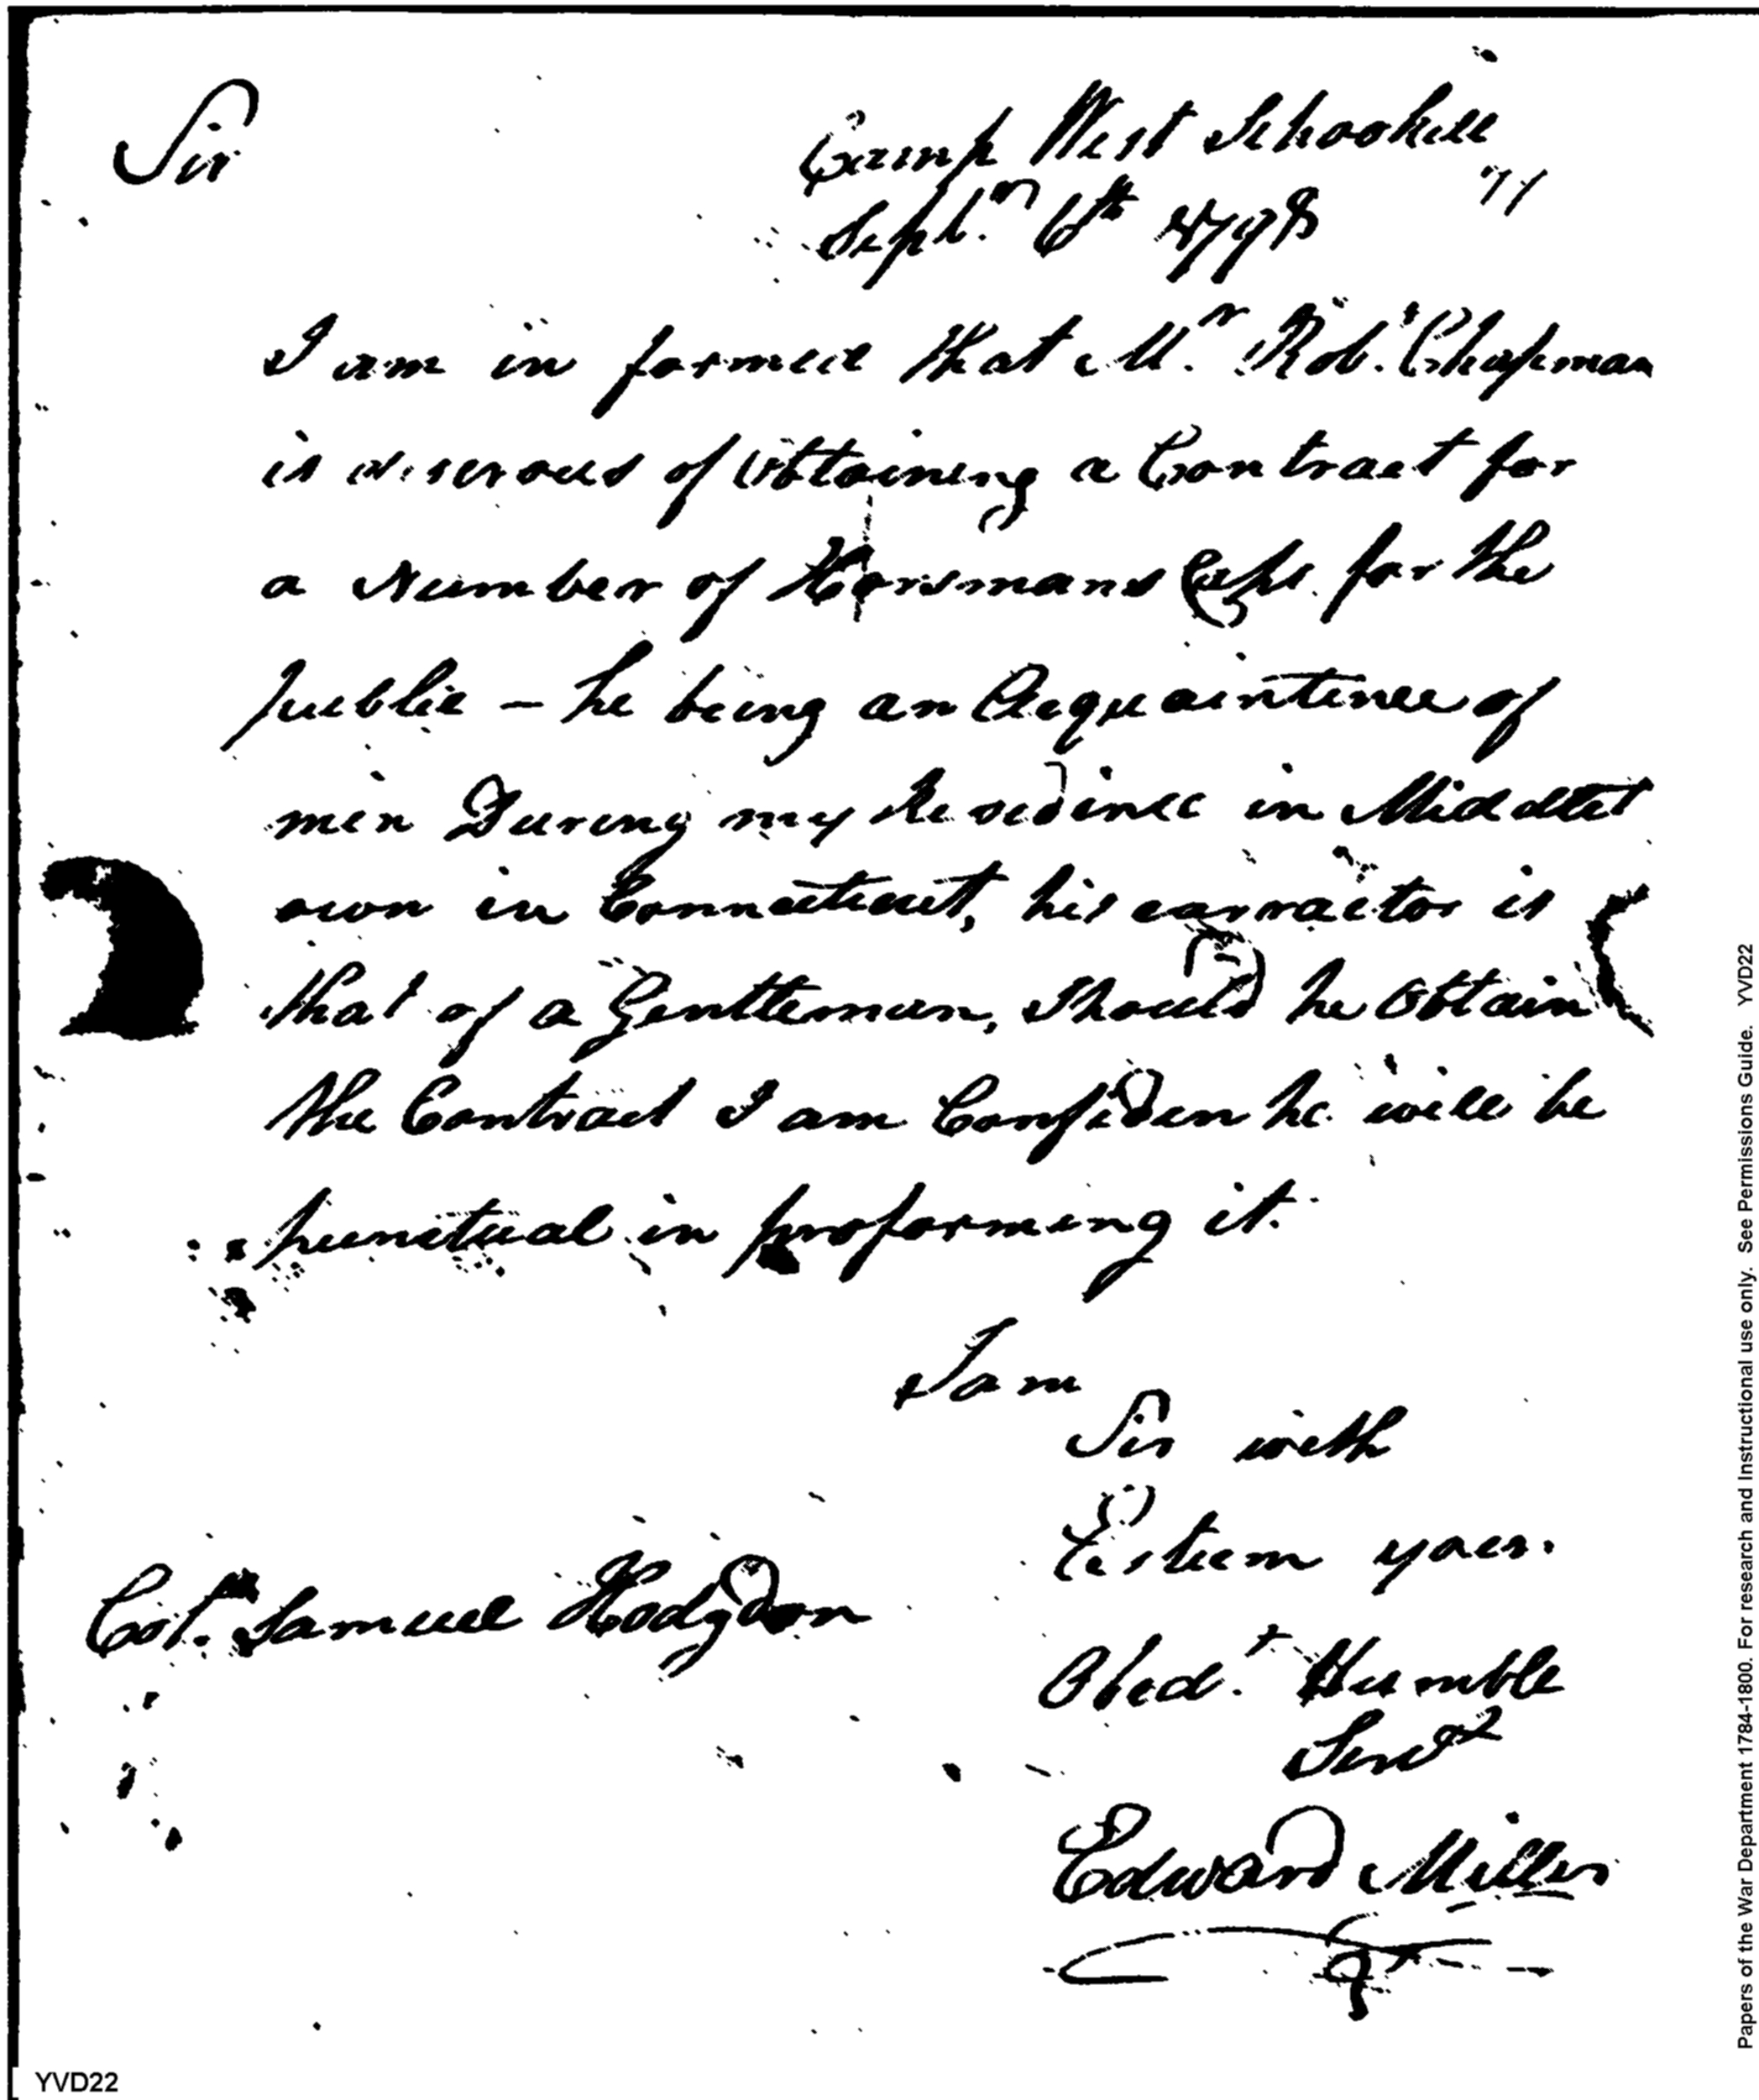 Sir
Camp West Schoolkill
Sept.m 6th 1798
I am in formed that Mr. Rob.t Chapman
is deserous of obtaining a Contract for
a Number of Horsmans Caps for the
public - he being an Acquaintence of
mien During my Residince in Middlet
own in Connecticut, his carractor is
that of a Genttleman, Should he obtain
the Contract I am Confiden he will be
punctual in proforming it.
I am
Sir with
Esteem your
Obed.t Humble
Servt
Col. Samuel Hodgdon
Edward Miller
Papers of the War Department 1784-1800. For research and Instructional use only. See Permissions Guide. YVD22
YVD22